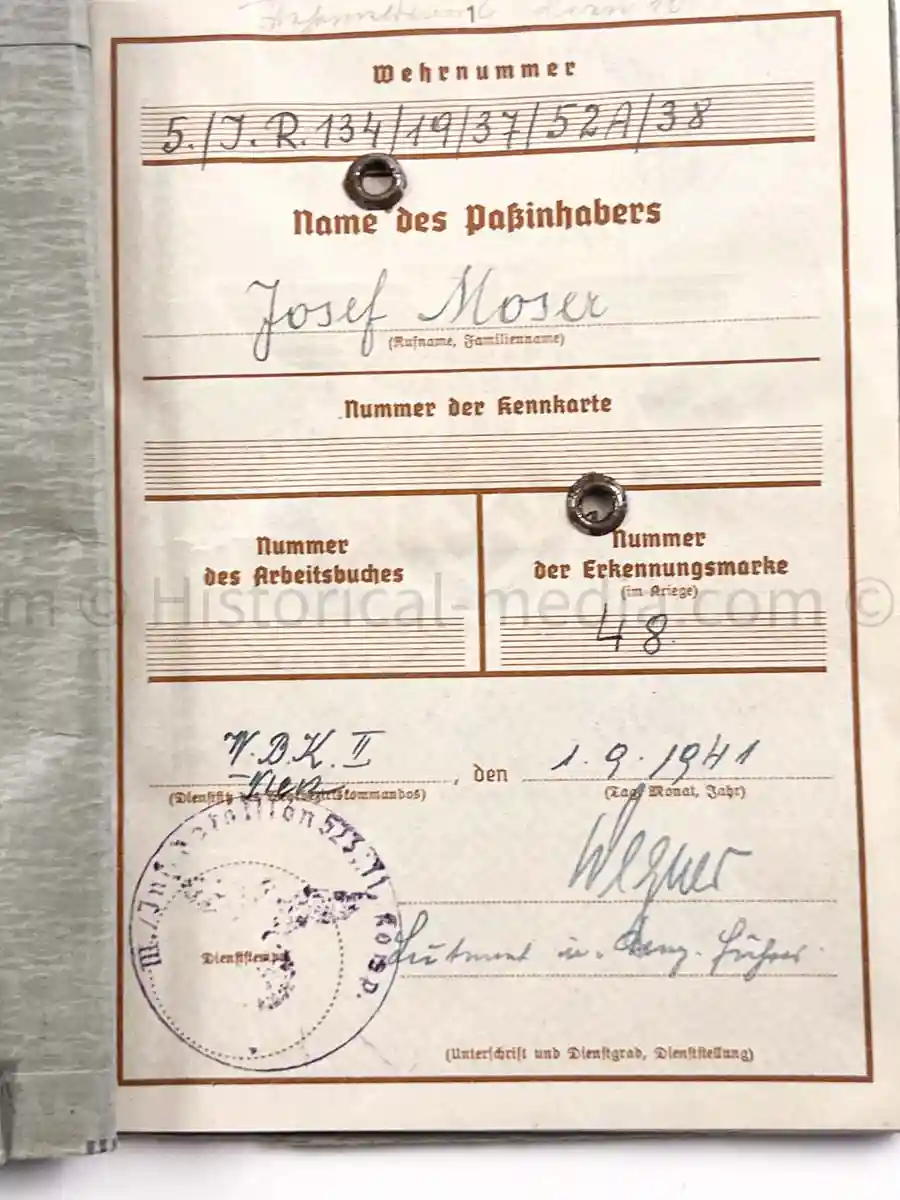 1
Wehrnummer
5./J.R.134/19/37/52A/38
Name des Paßinhabers
Josef Moser
(Rufname, Familienname)
Nummer der Kennkarte
Nummer
des Arbeitsbuches
Nummer
der Erkennungsmarke
(im Kriege)
48
© Historical-media.com ©
W.B.K. II
Wien
, den 1.9.1941
(Dienstsitz des Wehrbezirkskommandos)
(Tag, Monat, Jahr)
Wegner
Leutnant u. Führer
Dienststempel
(Unterschrift und Dienstgrad, Dienststellung)